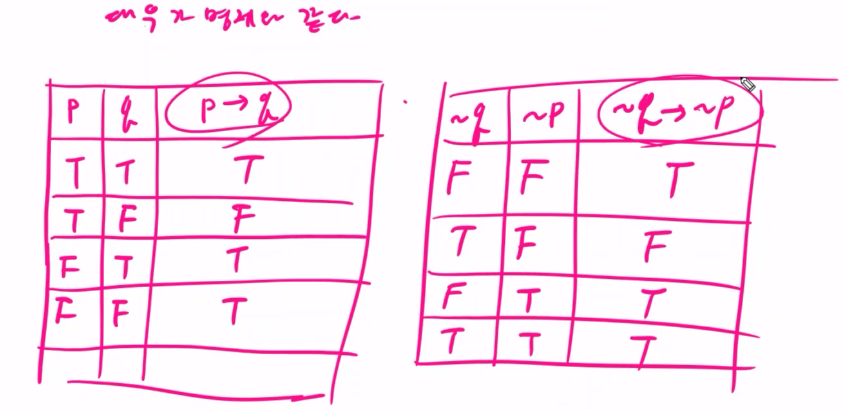 대우가 명제와 같다
p q p → q
T T T
T F F
F T T
F F T
~q ~p ~q → ~p
F F T
T F F
F T T
T T T